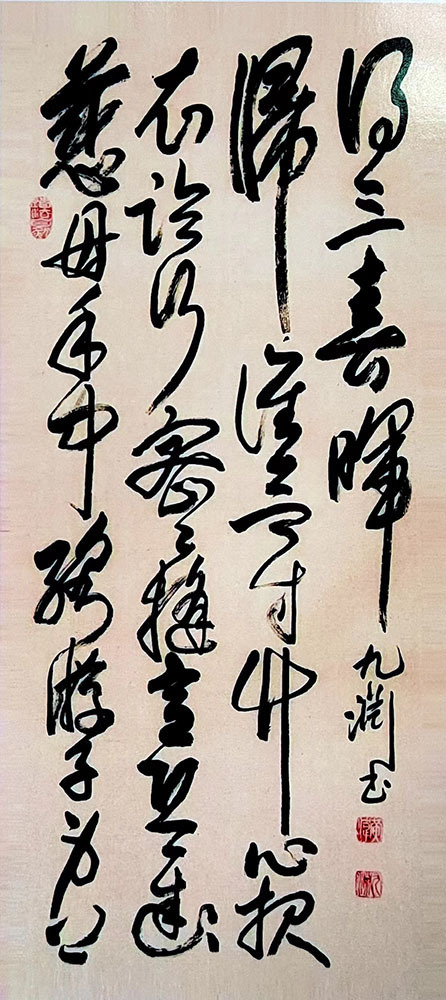 慈母手中線遊子身上
衣臨行密々縫意恐遲々
歸誰言寸草心報
得三春暉
九淵书